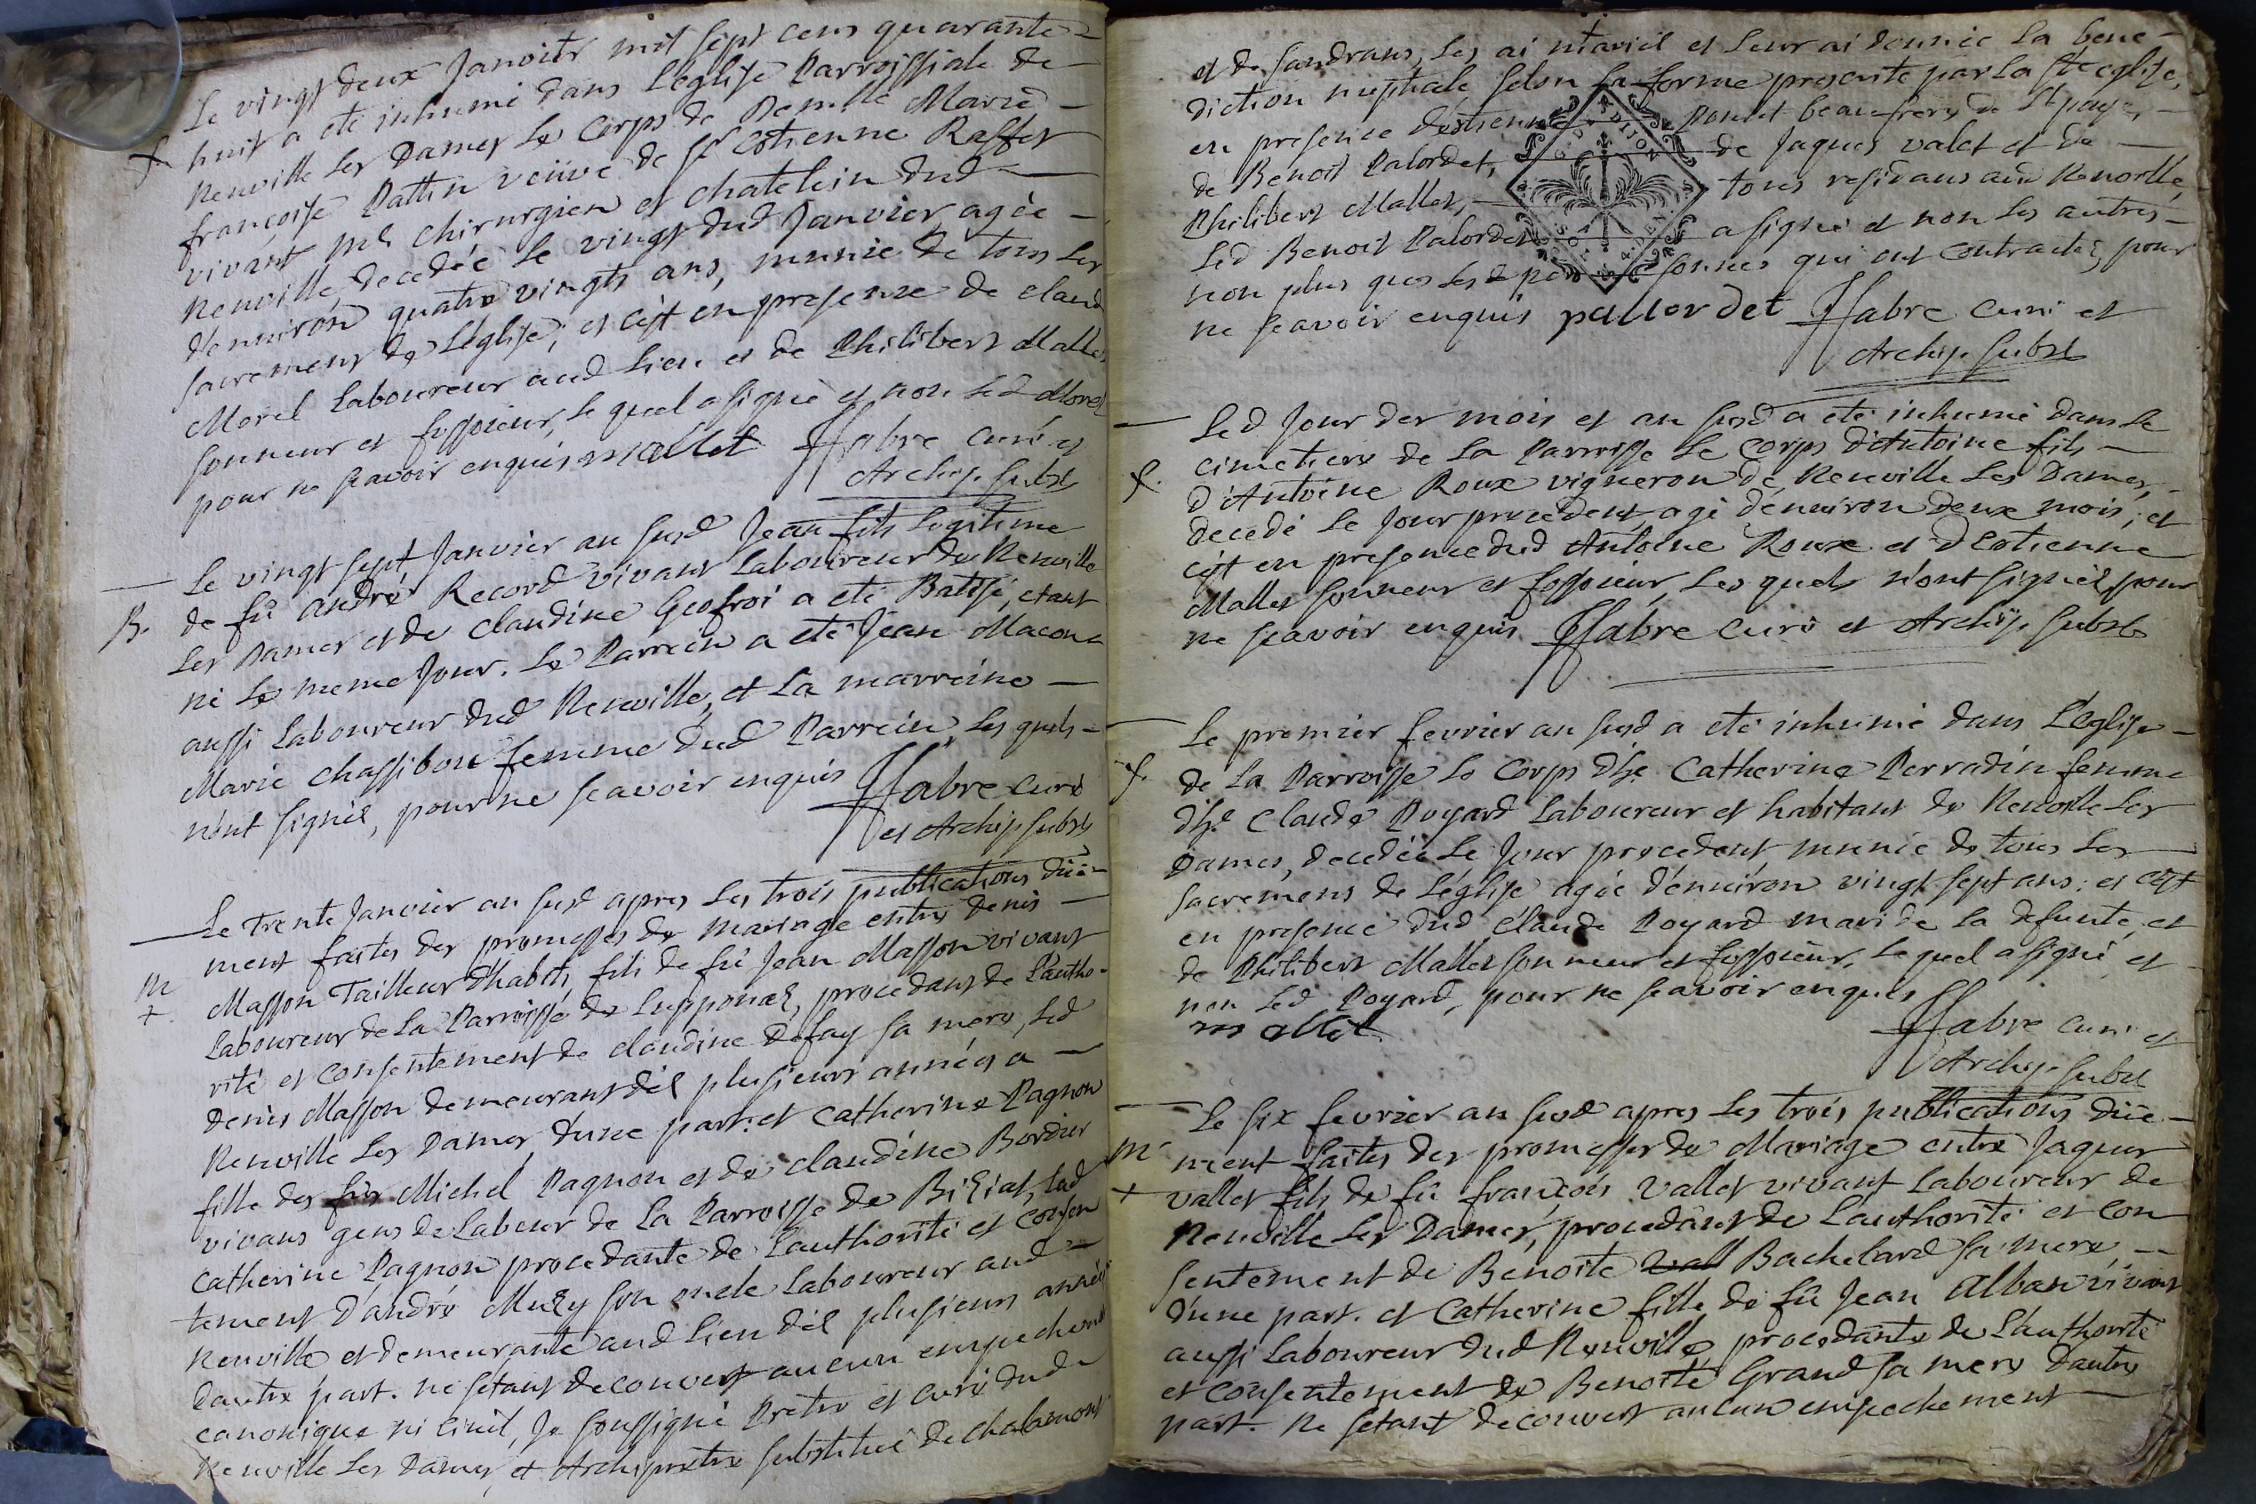 Le vingt deux Janvier mil sept cens quarante
huit a eté inhumé dans L'eglise Parroissiale de
Neuville Les Dames Le Corps de Demlle Marie
françoise Pattin veuve de Sr Estienne Raffet
vivant Me chirurgien et chatelain dud
Neuville decedée Le vingt dud Janvier agée
d'environ quatre vingts ans, munie de tous Les
sacremens de L'église; et c'est en presense de claude
Morel Laboureur aud Lieu et de Philibert Mallet
sonneur et fossoieur, le quel a signé et non Led Morel
pour ne scavoir enquis mallet ffabre curé et
Archip. Subst
B.
Le vingt sept Janvier an susd Jean fils Legitime
de fû andré Record vivant Laboureur de Neuville
Les Dames et de claudine Geofroi a eté Batisé, etant
né Le meme Jour. Le Parrein a eté Jean Macon
aussi Laboureur dud Neuville, et La marreine
Marie chassibou femme dud Parrein, Les quels
n'ont signés, pour ne scavoir enquis ffabre curé
et Archip. Subst
M
+
Le Trente Janvier an susd apres Les trois publications düe-
ment faites des promesses de Mariage entre Denis
Masson Tailleur d'habits, fils de fû Jean Masson vivant
Laboureur de La Parroisse de Supponas, procedant de L'autho-
rité et consentement de claudine Defay sa mere, Led
Denis Masson demeurant dés plusieurs années a
Neuville Les Dames, d'une part: et Catherine Pagnon
fille des fûs Michel Pagnon et de claudine Bordier
vivans gens de Labeur de La Parroisse de Biziat, Lad
Catherine Pagnon procedante de L'authorité et consen
tement d'andré Muzy son oncle Laboureur aud
Neuville et demeurante aud Lieu dés plusieurs années
d'autre part. ne s'etant decouvert aucun empechement
canonique ni civil, Je soussigné Pretre et curé dud
Neuville Les Dames, et Archipretre substitué de chalamont
et de sandrans, Les ai mariés et Leur ai donnée La bene-
diction nuptiale selon La forme prescrite par La Ste eglise,
en presence d'estienne Ponset beaufrere de L'epouse,
de Benoit Palordet, de Jaques valet et de
Philibert Mallet, tous residans aud Neuville
Led Benoit Palordet a signé et non Les autres
non plus que Les personnes qui ont contractés, pour
ne scavoir enquis pallordet ffabre curé et
Archip. Subst
GEN DE DIJON
Led Jour des mois et an susd a eté inhumé dans Le
cimetiere de La Parroisse Le Corps d'Antoine fils
d'Antoine Roux vigneron de Neuville Les Dames,
decedé Le Jour precedent agé d'environ deux mois; et
c'est en presence dud Antoine Roux et d'Estienne
Mallet sonneur et fossoieur, Les quels n'ont signés, pour
ne scavoir enquis ffabre curé et Archip. Subst
Le premier fevrier an susd a eté inhumé dans L'Eglise
de La Parroisse Le Corps d'he Catherine Perradin femme
d'he Claude Poyard Laboureur et habitant de Neuville Les
Dames, decedée Le Jour precedent, munie de tous Les
sacremens de L'église agée d'environ vingt sept ans; et c'est
en presence dud Claude Poyard mari de La defunte, et
de Philibert Mallet sonneur et fossoieur, Le quel a signé et
non Led Poyard, pour ne scavoir enquis
mallet
ffabre curé et
Archip. Subst
M
+
Le six fevrier an susd apres Les trois publications düe-
ment faites des promesses de Mariage entre Jaques
vallet fils de fû françois vallet vivant Laboureur de
Neuville Les Dames, procedant de L'authorité et con
sentement de Benoite vall Bachelard sa mere
d'une part. et Catherine fille de fû Jean Alban vivant
aussi Laboureur dud Neuville, procedante de L'authorité
et consentement de Benoite Grand sa mere d'autre
part. Ne s'etant decouvert aucun empechement